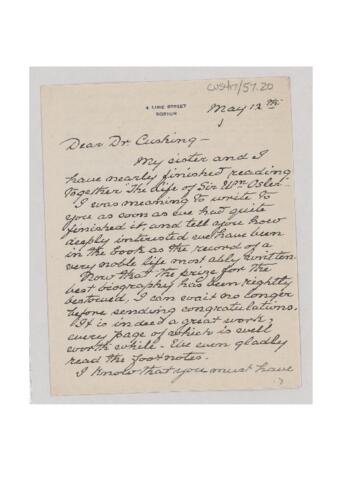 CUS417/57.20
4 LIME STREET
BOSTON
May 12th
Dear Dr. Cushing -
My sister and I
have nearly finished reading
together "The Life of Sir Wm Osler".
I was meaning to write to
you as soon as we had quite
finished it, and tell you how
deeply interested we have been
in the book as the record of a
very noble life most ably written.
Now that the prize for the
best biography has been rightly
bestowed, I can wait no longer
before sending congratulations.
It is indeed a great work,
every page of which is well
worth while - We even gladly
read the footnotes.
I know that you must have